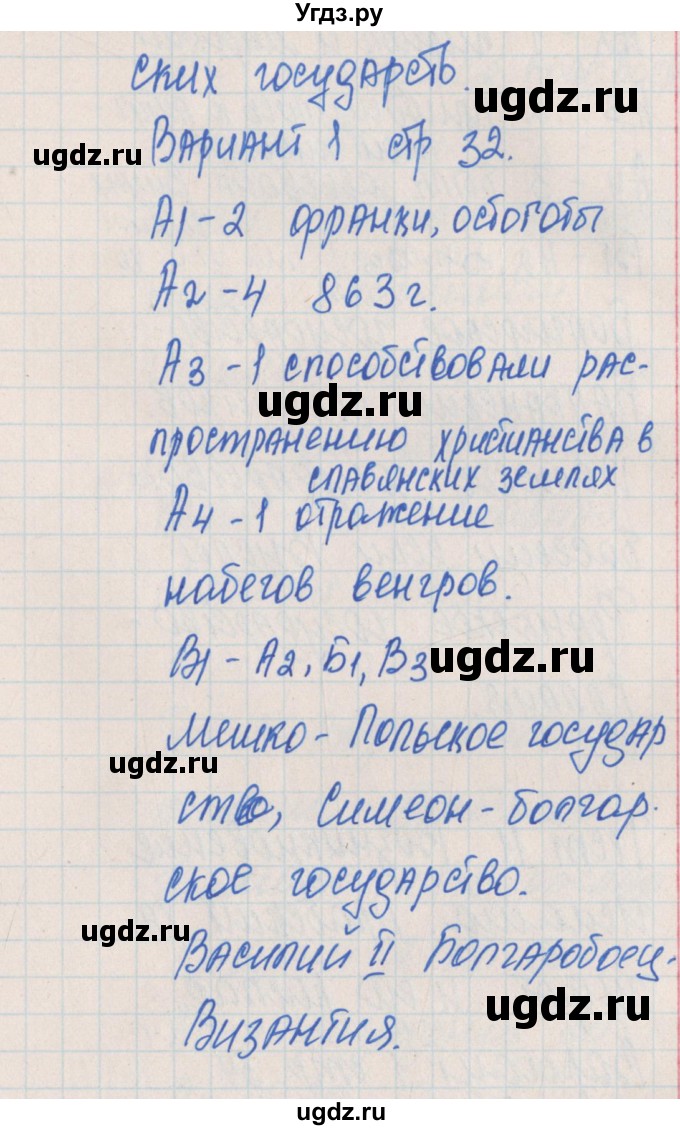 Угдз.ру
ских государств.
ugdz.ru
Вариант 1 стр 32.
ugdz.ru
А1-2 франки, остготы
А2-4 863г.
А3-1 способствовали рас-
ugdz.ru
пространению христианства в
славянских землях
А4-1 отражение
набегов венгров.
В1-А2, Б1, В3
ugdz.ru
Мешко-Польское государ
ugdz.ru
ство, Симеон-болгар.
ское государство.
ugdz.ru
Василий II Болгаробоец-
ugdz.ru
Византия.
ugdz.ru